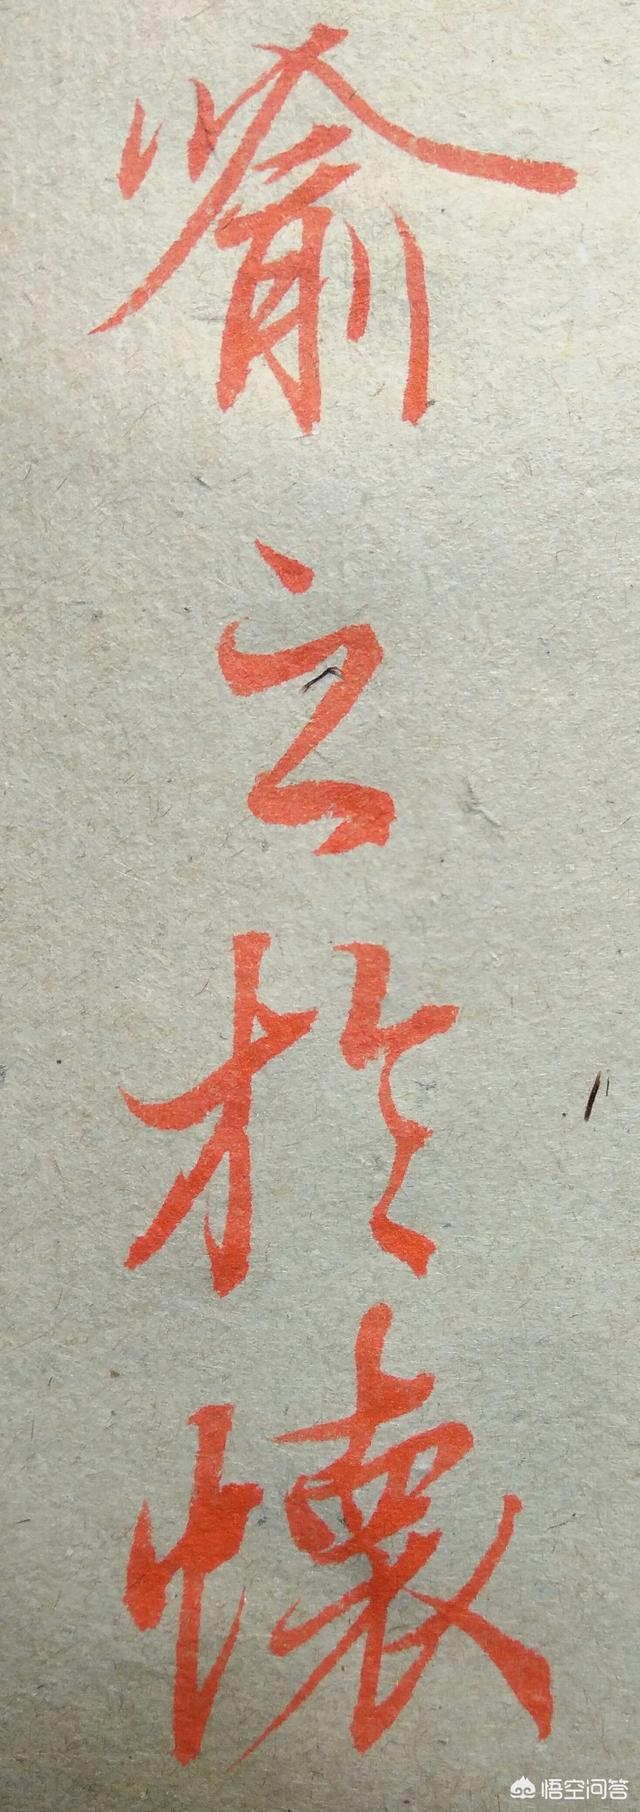 喻之於懷
悟空问答